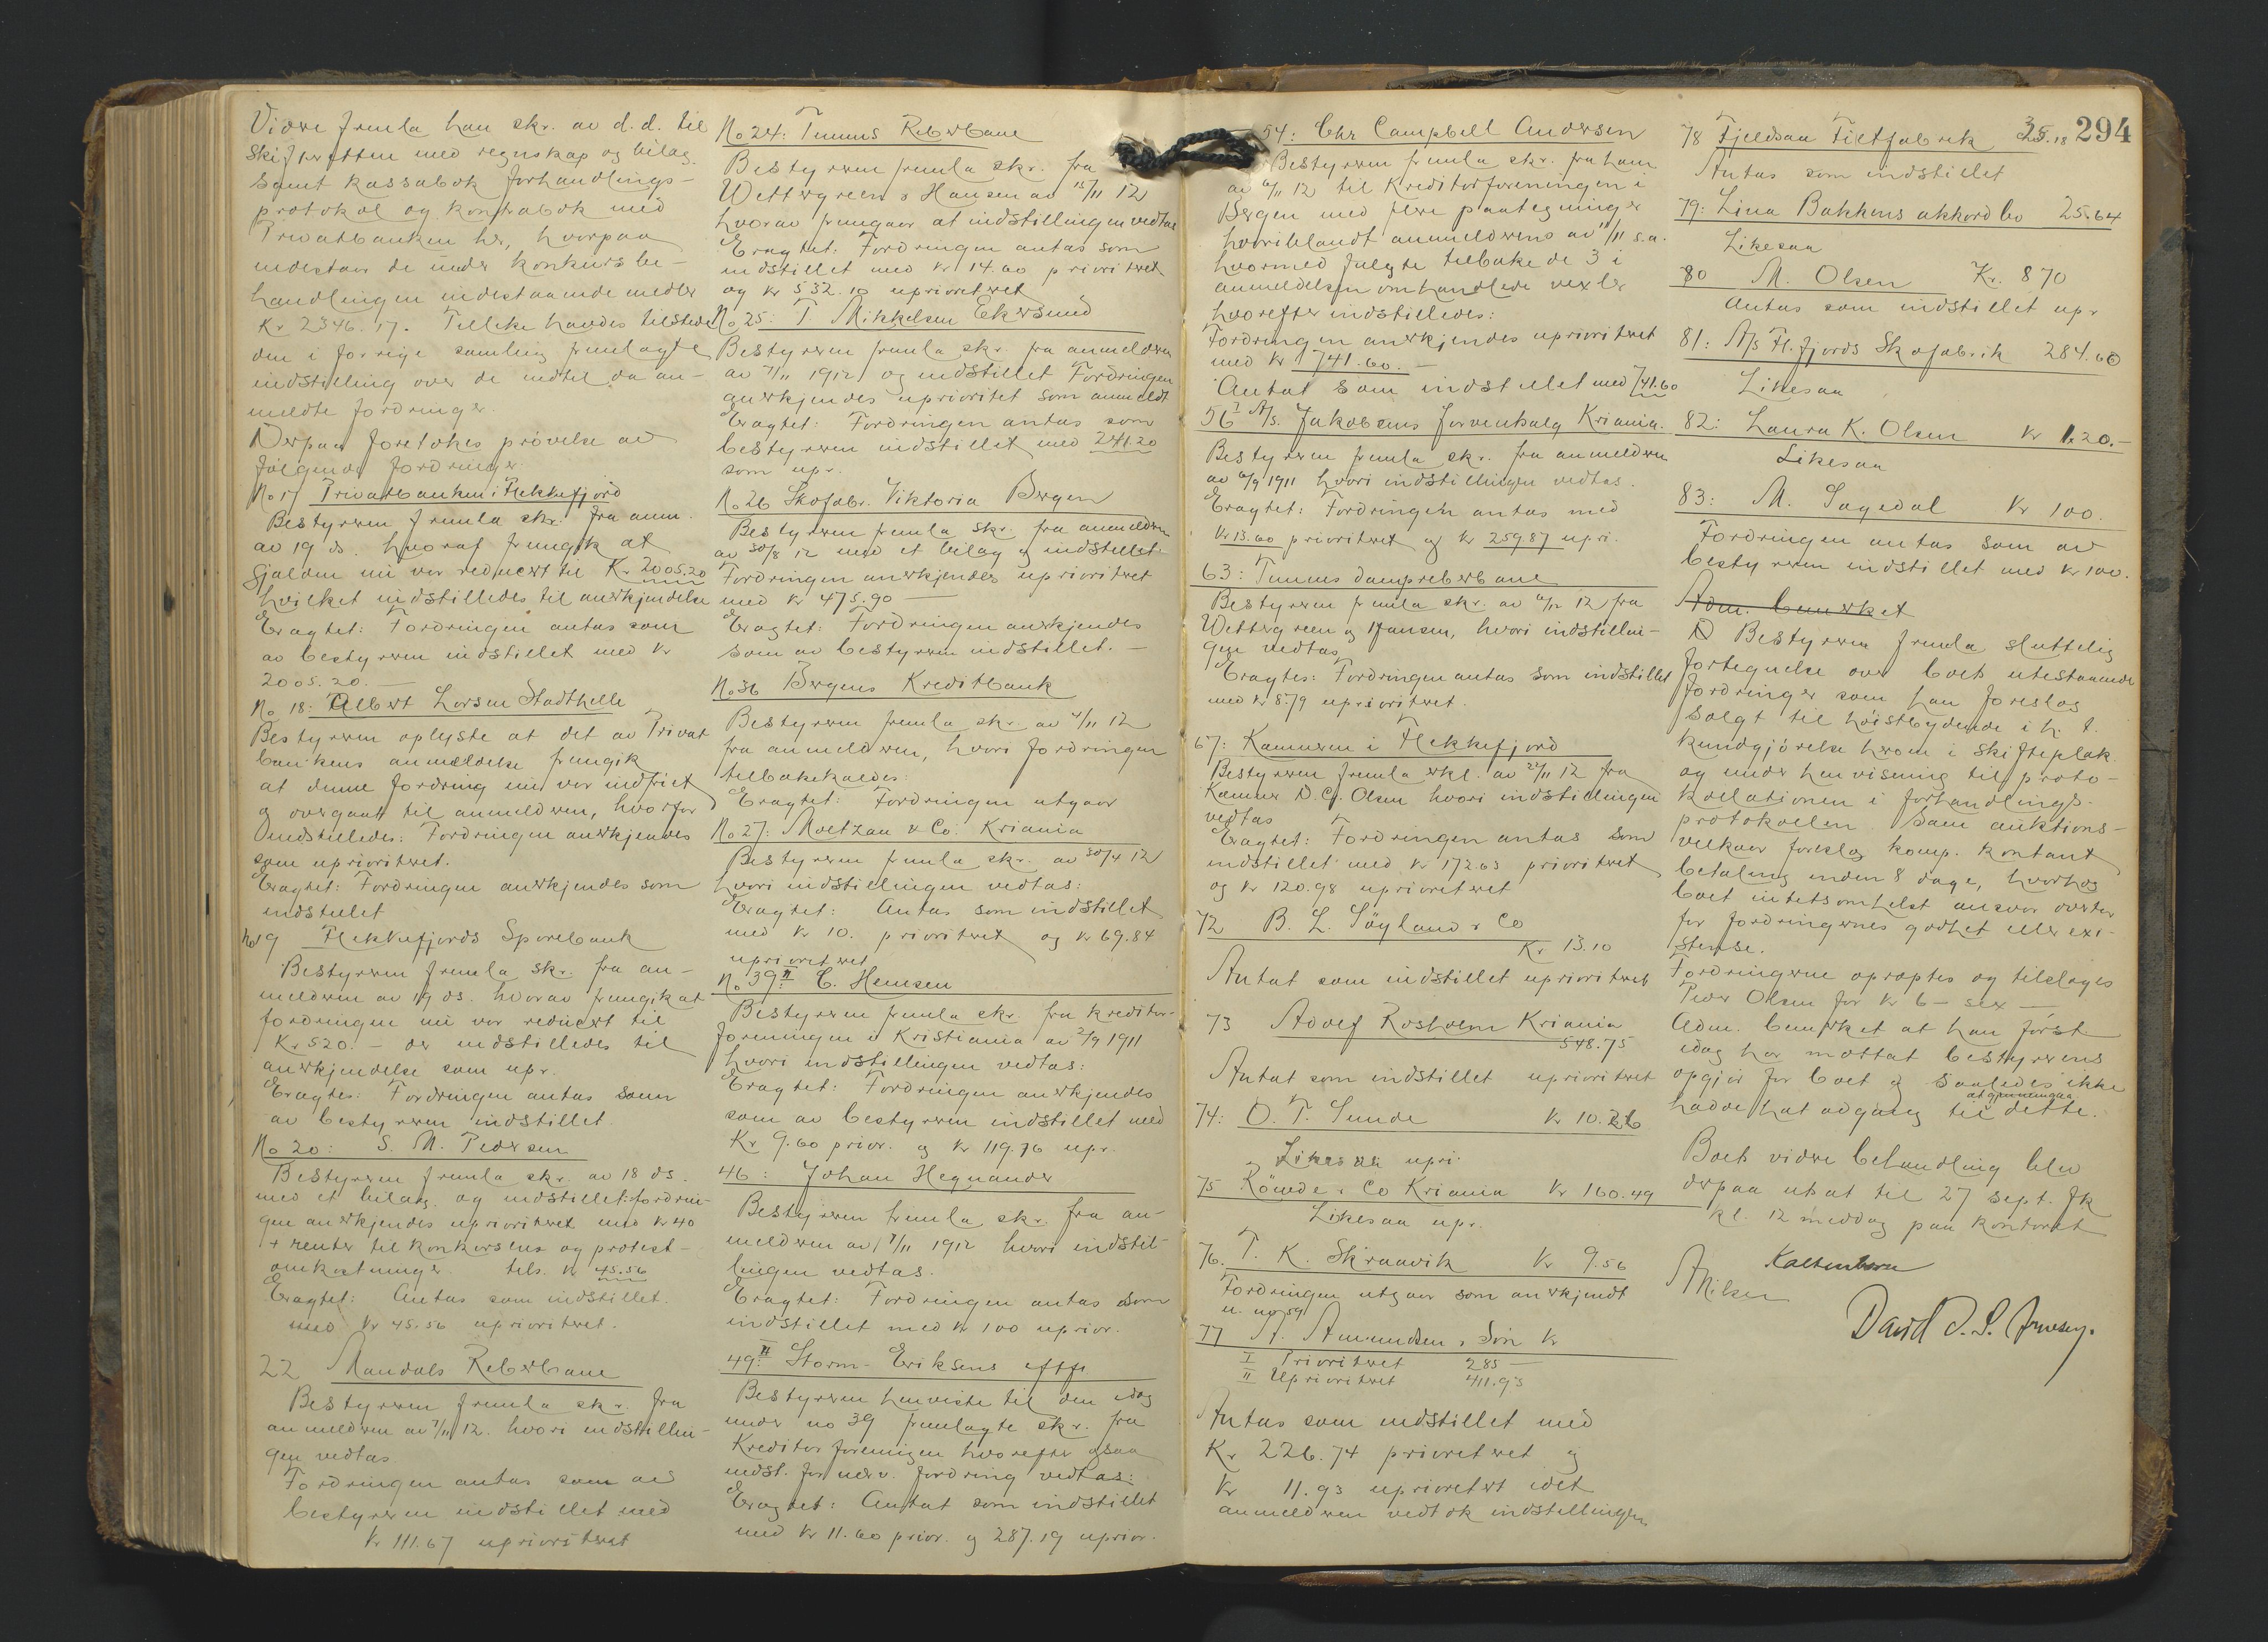 Vidre fremla han skr. av d.d. til
skifteretten med regnskap og bilag
samt kassabok forhandlings-
protokol og kontrabok med
Privatbanken her, hvorpaa
indestaar de under konkursbe-
handlingen indestaaende midler
Kr. 2346.17. Tillike havdes tilstede
den i forrige samling fremlagte
indstilling over de indtil da an-
meldte fordringer.
Derpaa foretokes prövelse av
følgende fordringer:
No 17 Privatbanken i Flekkefjord
Bestyreren fremla skr. fra anm.
av 19 ds. hvoraf fremgik at
gjælden nu var reducert til Kr. 2005.20
hvilket indstilledes til anerkjendelse
Eragtet: Fordringen antas som
av bestyreren indstillet med kr
2005.20.—
No 18: Albert Larsen Stadthelle
Bestyreren oplyste at det av Privat
bankens anmeldelse fremgik
at denne fordring nu var indfriet
og overgaat til anmelderen, hvorfor
indstilledes: Fordringen anerkjendes
som uprioritert.
Eragtet: Fordringen anerkjendes som
indstillet
No 19 Flekkefjords Sparebank
Bestyreren fremla skr. fra an-
melderen av 19 ds. hvorav fremgik at
fordringen nu var reducert til
Kr 520.— der indstilledes til
anerkjendelse som upr.
Eragtes: Fordringen antas som
av bestyreren indstillet.
No 20: S. M. Pedersen
Bestyreren fremla skr. av 18 ds.
med et bilag og indstillet: fordrin-
gen anerkjendes uprioritert med kr 40
+ renter til konkursens og protest-
omkostninger. tils. kr 45.56
Eragtet: Antas som indstillet.
med kr 45.56 uprioritert.
22 Mandals Reberbane
Bestyreren fremla skr. fra
anmelderen av 7/11 12. hvori indstillin-
gen vedtas.
Fordringen antas som av
bestyreren indstillet med
kr 111.67 uprioritert
No 24: Timms Reberbane
Bestyreren fremla skr. fra
Wettergreen & Hansen av 15/11 12
hvorav fremgaar at indstillingen vedtas
Eragtet: Fordringen antas som
indstillet med kr 14.60 prioritert
og kr 532.10 uprioritert
No 25: T Mikkelsen Ekersund
Bestyreren fremla skr. fra anmelderen
av 7/11 1912 og indstillet Fordringen
anerkjendes uprioritet som anmeldt
Eragtet: Fordringen antas som
bestyreren indstillet med 241.20
som upr.
No 26 Skofabr. Viktoria Bergen
Bestyreren fremla skr. fra anmelderen
av 30/8 12 med et bilag og indstillet:
Fordringen anerkjendes uprioritert
med kr 475.90 —
Eragtet: Fordringen anerkjendes
som av bestyreren indstillet.—
No 36 Bergens Kreditbank
Bestyreren fremla skr. av 4/11 12
fra anmelderen, hvori fordringen
tilbakekaldes:
Eragtet: Fordringen utgaar
No 27: Moltzau & Co. Kriania
Bestyreren fremla skr. av 30/4 12
hvori indstillingen vedtas:
Eragtet: Antas som indstillet
med kr 10. prioritert og kr 69.84
uprioritert
No 39 II C. Hemsen
Bestyreren fremla skr. fra kreditor-
foreningen i Kristiania av 2/9 1911
hvori indstillingen vedtas:
Eragtet: Fordringen anerkjendes
som av bestyreren indstillet med
Kr 9.60 prior. og kr 119.76 upr.
46: Johan Hegnander
Bestyreren fremla skr. fra an-
melderen av 8/11 1912 hvori indstil-
lingen vedtas.
Eragtet: Fordringen antas som
indstillet med kr 100 uprior.
49 II Storm-Eriksens eftf.
Bestyreren henviste til den idag
under no 39 fremlagte skr. fra
Kreditorforeningen hvorefter ogsaa
indst. for nærv. fordring vedtas:
Eragtet: Antat som indstillet
med kr 11.60 prior. og 287.19 uprior.
54: Chr Campbell Andersen
Bestyreren fremla skr. fra ham
av 6/11 12 til Kreditorforeningen i
Bergen med flere paategninger
hvoriblandt anmelderens av 11/11 s.a.
hvormed fulgte tilbake de 3 i
anmeldelsen omhandlede vexler
hvorefter indstilledes:
Fordringen anerkjendes uprioritert
med kr 741.60.—
Antat som indstillet med 741.60
56 I A/s. Jakobsens farvehalag Kriania.
Bestyreren fremla skr. fra anmelderen
av 6/9 1911 hvori indstillingen vedtas.
Eragtet: Fordringen antas med
Kr 13.60 prioritert og kr 259.87 upri.
63: Timms dampreberbane
Bestyreren fremla skr. av 6/12 12 fra
Wettergreen og Hansen, hvori indstillin-
gen vedtas
Eragtes: Fordringen antas som indstillet
med kr 8.79 uprioritert.
67: Kæmneren i Flekkefjord
Bestyreren fremla erkl. av 22/11 12 fra
Kæmner D. C. Olsen hvori indstillingen
vedtas
Eragtet: Fordringen antas som
indstillet med kr 172.63 prioritert
og kr 120.98 uprioritert
72 B. L. Söyland & Co
Kr. 13.10
Antat som indstillet uprioritert
73 Adolf Rosholm Kriania
548.75
Antat som indstillet uprioritert
74: O. T. Sunde Kr 10.26
Likesaa upri.
75 Röwede & Co Kriania Kr 160.49
Likesaa upr.
76. T. K. Skraavik Kr 9.56
Fordringen utgaar som anerkjendt
u. no 59
77 A. Amundsen & Sön kr
I Prioritert 285 —
II Uprioritert 411.93
Antas som indstillet med
Kr 226.74 prioritert og
Kr 11.93 uprioritert idet
anmelderen vedtok indstillingen
294
78 Fjeldsaa Filtfabrik 35.18
Antas som indstillet
79: Lina Bakkens akkordbo 25.64
Likesaa
80 M. Olsen Kr. 8 70
Antas som indstillet upr
81: A/s Fl.fjords Skofabrik 284.60
Likesaa
82: Laura K. Olsen kr 120.—
Likesaa
83: M. Sagedal Kr 100.
Fordringen antas som av
bestyreren indstillet med kr 100.
Adm. bemerket
Bestyreren fremla sluttelig
fortegnelse over boets utestaaende
fordringer som han foreslog
solgt til høistbydende i h. t.
kundgjörelse herom i skifteplak.
og under henvisning til proto-
kollationen i forhandlings-
protokollen. Som auktions-
vilkaar foreslog komp. kontant
betaling inden 8 dage, hvorhos
boet intetsomhelst ansvar overtar
for fordringernes godhet eller exi-
stense.
Fordringerne opraptes og tilsloges
Peder Olsen for kr 6 – sex —
Adm. bemerket at han först
idag har mottat bestyrerens
opgjör for boet og saaledes ikke
hadde hat adgang til at gjennemgaa dette.
Boets vidre behandling blev
derpaa utsat til 27 sept. fk
kl. 12 middag paa kontoret
Kaltenborn
David O. S.